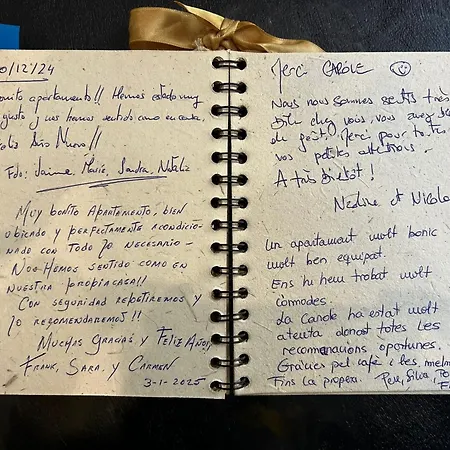 0/12/24
onito apartamento!! Hemos estado muy
gusto y nos hemos sentido como en casa.
Feliz Año Nuevo!!
Fdo: Jaime, María, Sandra, Natalia
Muy bonito Apartamento, bien
ubicado y perfectamente acondicio-
nado con todo lo necesario -
Nos hemos sentido como en
nuestra propia casa!!
Con seguridad repetiremos y
lo recomendaremos!!
Muchas gracias y Feliz Año!
Frank, Sara y Carmen
3-1-2025
Merci CAROLE
Nous nous sommes sentis très
bien chez vous, vous avez
du goût, Merci pour toutes
vos petites attentions.
A très bientôt!
Nadine et Nicola
Un apartament molt bonic
molt ben equipat.
Ens hi hem trobat molt
còmodes.
La Carole ha estat molt
atenta donant totes les
recomanacions oportunes.
Gràcies pel cafè i les
Fins la propera. Pere, Silvia,